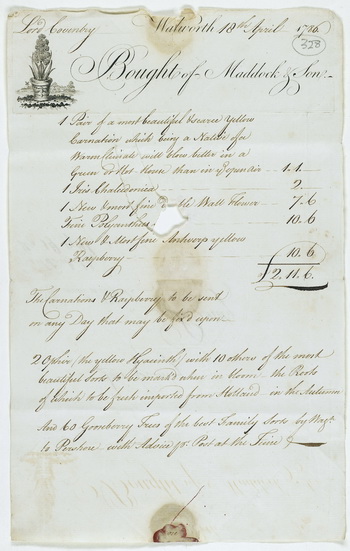 Lord Coventry Walworth 18th April 1786
328
Bought of Maddock & Son
1 Pair of a most beautiful & scarce Yellow
Carnation which being a Native of a
Warm Climate will blow better in a
Green or Hot House than in ye open air 1.1.
1 Iris Chalcedonica 2
1 New & most fine Wall Flower 7.6
Fine Polyanthus 10.6
1 New & Most fine Antwerp yellow
Raspberry 10.6
£2.11.6.
The Carnations & Raspberry to be sent
on any Day that may be fix'd upon
2 Ophir (the yellow Hyacinth) with 10 others of the most
beautiful Sorts to be mark'd when in bloom the Roots
of which to be fresh imported from Holland in the Autumn
And 60 Gooseberry Trees of the best Family Sorts by Wagn
to Pershore with Advice pr Post at the Time